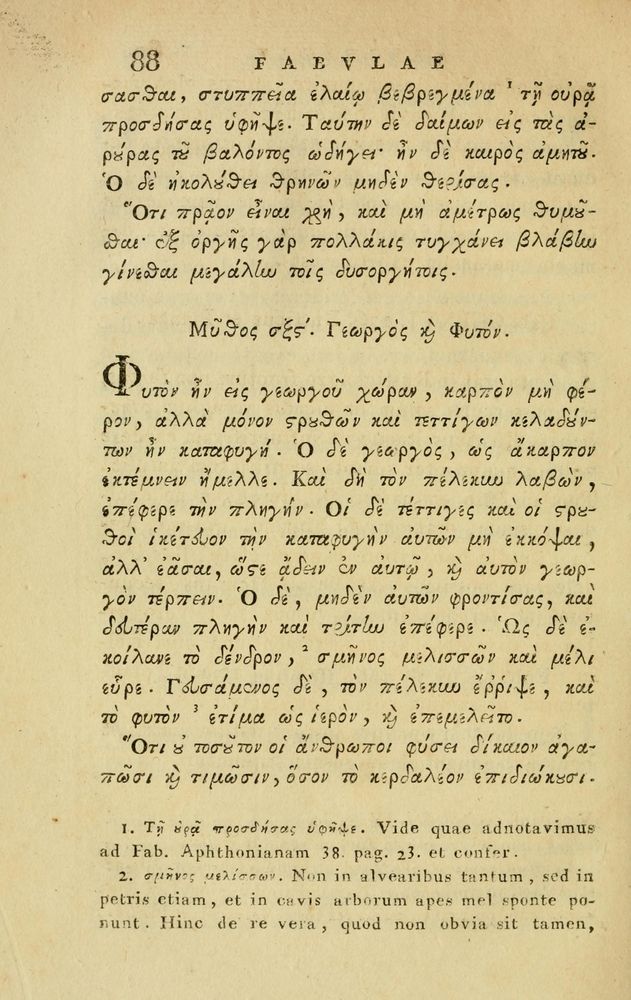 88 FABVLAE
σασθαι, στυππεῖα ἐλαίῳ βεβρεγμένα ¹ τῇ οὐρᾷ
προσδήσας ὑφῆψε. Ταύτην δὲ δαίμων εἰς τὰς ἀ-
ρούρας τοῦ βαλόντος ὡδήγει· ἦν δὲ καιρὸς ἀμητοῦ.
Ὁ δὲ ἠκολούθει θρηνῶν μηδὲν θερίσας.
Ὅτι πρᾶον εἶναι χρὴ, καὶ μὴ ἀμέτρως θυμοῦ-
σθαι· ἐξ ὀργῆς γὰρ πολλάκις τυγχάνει βλάβην
γίνεσθαι μεγάλην τοῖς δυσοργήτοις.
Μῦθος σξϛʹ. Γεωργὸς καὶ Φυτόν.
Φυτὸν ἦν εἰς γεωργοῦ χώραν, καρπὸν μὴ φέ-
ρον, ἀλλὰ μόνον στρουθῶν καὶ τεττίγων κελαδούν-
των ἦν καταφυγή. Ὁ δὲ γεωργὸς, ὡς ἄκαρπον
ἐκτέμνειν ἤμελλε. Καὶ δὴ τὸν πέλεκυν λαβὼν,
ἐπέφερε τὴν πληγήν. Οἱ δὲ τέττιγες καὶ οἱ στρου-
θοὶ ἱκέτευον τὴν καταφυγὴν αὐτῶν μὴ ἐκκόψαι,
ἀλλ' ἐᾶσαι, ὥστε ᾄδειν ἐν αὐτῷ, καὶ αὐτὸν γεωρ-
γὸν τέρπειν. Ὁ δὲ, μηδὲν αὐτῶν φροντίσας, καὶ
δευτέραν πληγὴν καὶ τρίτην ἐπέφερε. Ὡς δὲ ἐ-
κοίλανε τὸ δένδρον, ² σμῆνος μελισσῶν καὶ μέλι
εὗρε. Γευσάμενος δὲ, τὸν πέλεκυν ἔῤῥιψε, καὶ
τὸ φυτὸν ³ ἐτίμα ὡς ἱερὸν, καὶ ἐπεμελεῖτο.
Ὅτι οὐ τοσοῦτον οἱ ἄνθρωποι φύσει δίκαιον ἀγα-
πῶσι καὶ τιμῶσιν, ὅσον τὸ κερδαλέον ἐπιδιώκουσι.
1. Τῇ οὐρᾷ προσδήσας ὑφῆψε. Vide quae adnotavimus
ad Fab. Aphthonianam 38. pag. 23. et confer.
2. σμῆνος μελισσῶν. Non in alvearibus tantum, sed in
petris etiam, et in cavis arborum apes mel sponte po-
nunt. Hinc de re vera, quod non obvia sit tamen,